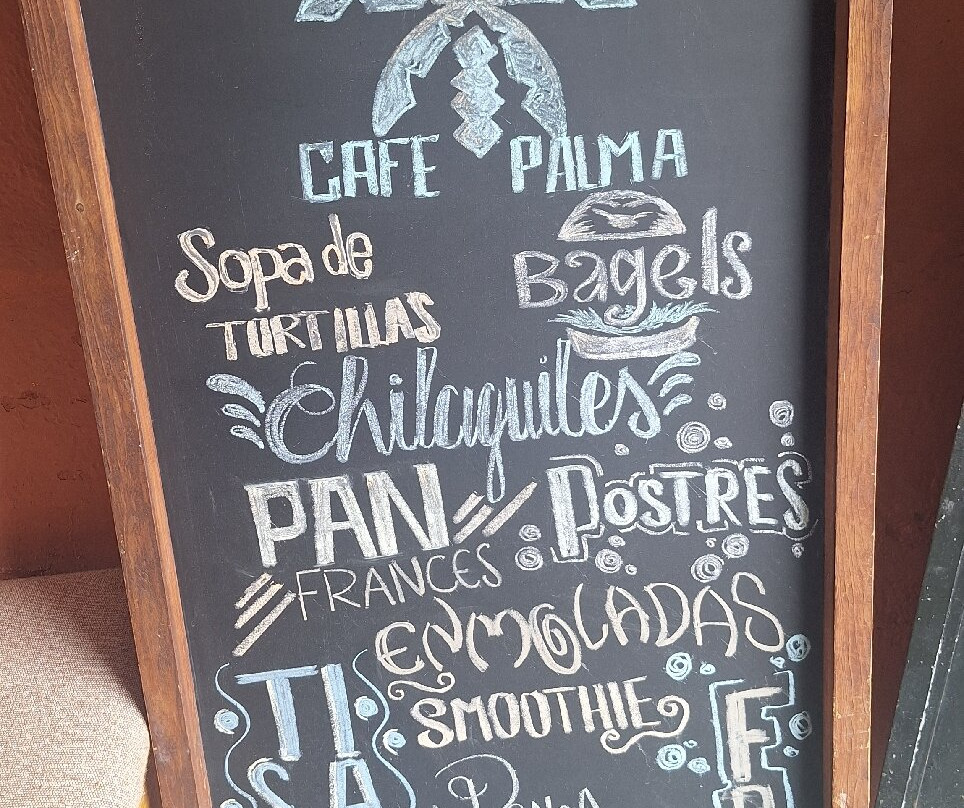 CAFE PALMA
Sopa de
TORTILLAS
Bagels
Chilaquiles
PAN
FRANCES
POSTRES
ENMOLADAS
TI
SA
SMOOTHIE
F